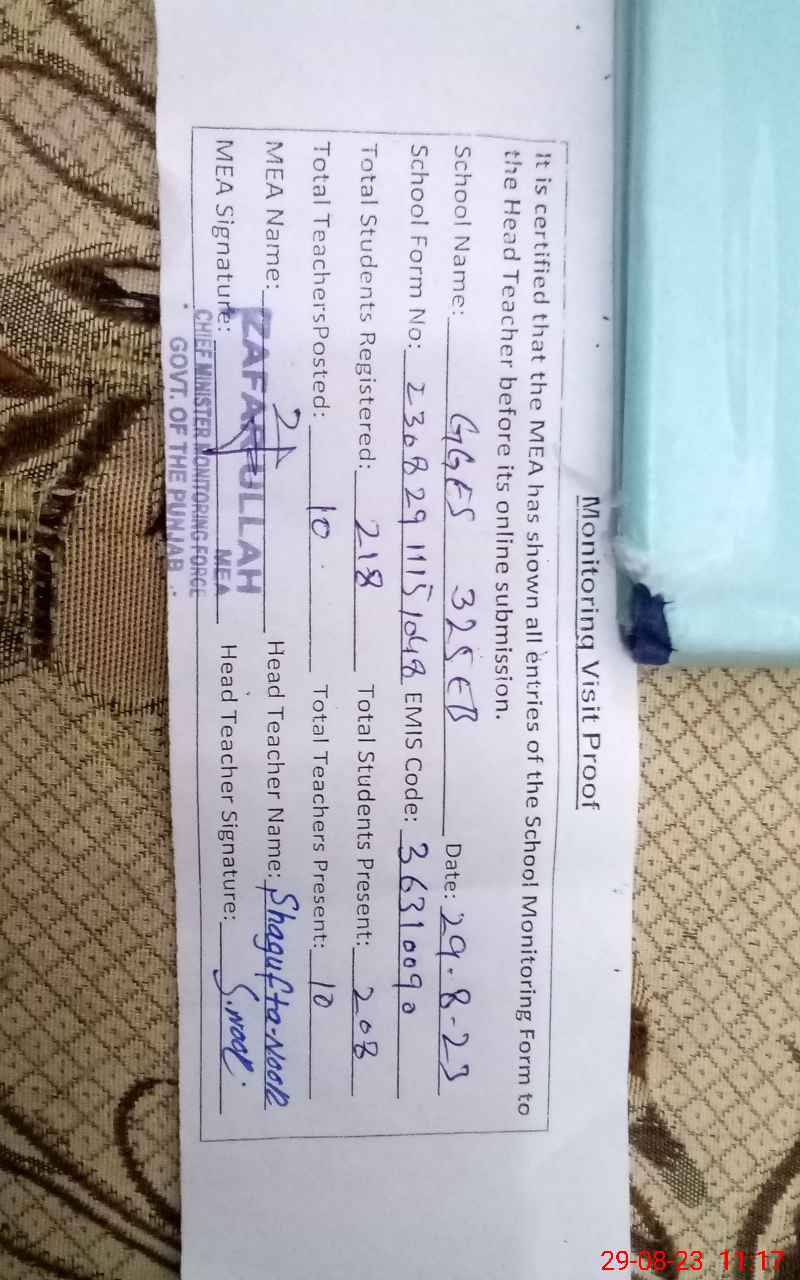 Monitoring Visit Proof
It is certified that the MEA has shown all entries of the School Monitoring Form to
the Head Teacher before its online submission.
School Name: GGES 325 EB Date: 29-8-23
School Form No: 230829111151048 EMIS Code: 36310090
Total Students Registered: 218 Total Students Present: 208
Total Teachers Posted: 10 Total Teachers Present: 10
MEA Name: ZAFARULLAH Head Teacher Name: Shagufta-Noor
MEA Signature: MEA Head Teacher Signature: S.noor
CHIEF MINISTER MONITORING FORCE
GOVT. OF THE PUNJAB
29-08-23 11:17